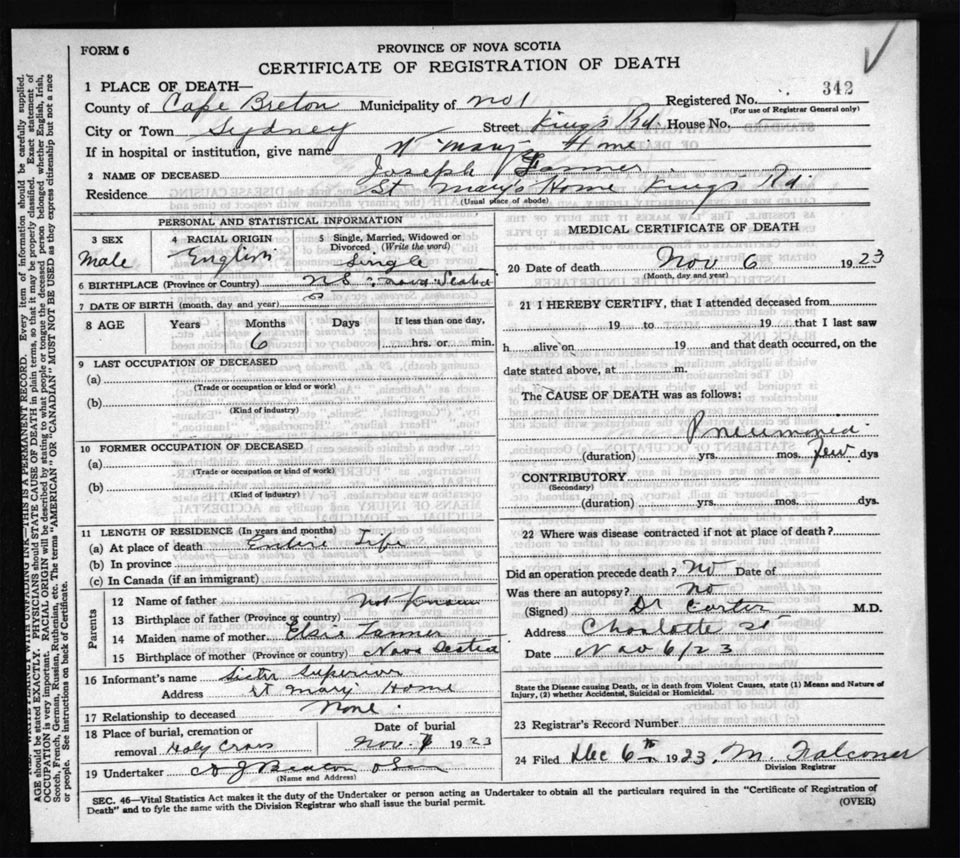 FORM 6
PROVINCE OF NOVA SCOTIA
CERTIFICATE OF REGISTRATION OF DEATH
342
1 PLACE OF DEATH—
County of Cape Breton Municipality of No 1 Registered No.
(For use of Registrar General only)
City or Town Sydney Street Kings Rd. House No.
If in hospital or institution, give name St Mary's Home
2 NAME OF DECEASED Joseph
Residence St Mary's Home Kings Rd.
(Usual place of abode)
PERSONAL AND STATISTICAL INFORMATION
3 SEX 4 RACIAL ORIGIN 5 Single, Married, Widowed or Divorced. (Write the word)
Male English Single
6 BIRTHPLACE (Province or Country) N S Nova Scotia
7 DATE OF BIRTH (month, day and year)
8 AGE Years Months Days If less than one day,
6 hrs. or min.
9 LAST OCCUPATION OF DECEASED
(a)
(Trade or occupation or kind or work)
(b)
(Kind of industry)
10 FORMER OCCUPATION OF DECEASED
(a)
(Trade or occupation or kind or work)
(b)
(Kind of industry)
11 LENGTH OF RESIDENCE (In years and months)
(a) At place of death Entire Life
(b) In province
(c) In Canada (if an immigrant)
Parents
12 Name of father Not Known
13 Birthplace of father (Province or country)
14 Maiden name of mother Elsie Tanner
15 Birthplace of mother (Province or country) Nova Scotia
16 Informant's name Sister Superior
Address St Mary Home
17 Relationship to deceased None
18 Place of burial, cremation or removal Holy Cross
Date of burial
Nov. 1923
19 Undertaker A J Beaton
(Name and Address)
MEDICAL CERTIFICATE OF DEATH
20 Date of death Nov 6 1923
(Month, day and year)
21 I HEREBY CERTIFY, that I attended deceased from
19 to 19 that I last saw
h alive on 19 and that death occurred, on the
date stated above, at m.
The CAUSE OF DEATH was as follows:
Pneumonia
(duration) yrs. mos. few dys
CONTRIBUTORY
(Secondary)
(duration) yrs. mos. dys.
22 Where was disease contracted if not at place of death?
Did an operation precede death? No Date of
Was there an autopsy? No
(Signed) Dr Carter M.D.
Address Charlotte St
Date Nov 6/23
State the Disease causing Death, or in death from Violent Causes, state (1) Means and Nature of
Injury, (2) whether Accidental, Suicidal or Homicidal.
23 Registrar's Record Number
24 Filed Dec 6th 1923, M. Falconer
Division Registrar
SEC. 46—Vital Statistics Act makes it the duty of the Undertaker or person acting as Undertaker to obtain all the particulars required in the "Certificate of Registration of
Death" and to fyle the same with the Division Registrar who shall issue the burial permit.
(OVER)
WRITE PLAINLY WITH UNFADING INK—THIS IS A PERMANENT RECORD. Every item of information should be carefully supplied.
AGE should be stated EXACTLY. PHYSICIANS should STATE CAUSE OF DEATH in plain terms, so that it may be properly classified. Exact statement of
OCCUPATION is very important. RACIAL ORIGIN will be described by stating to what people or tongue the deceased person belonged whether English, Irish,
Scotch, French, German, Russian, Ruthenian, etc. The terms "AMERICAN" OR "CANADIAN" MUST NOT BE USED as they express citizenship but not a race
or people. See instructions on back of Certificate.